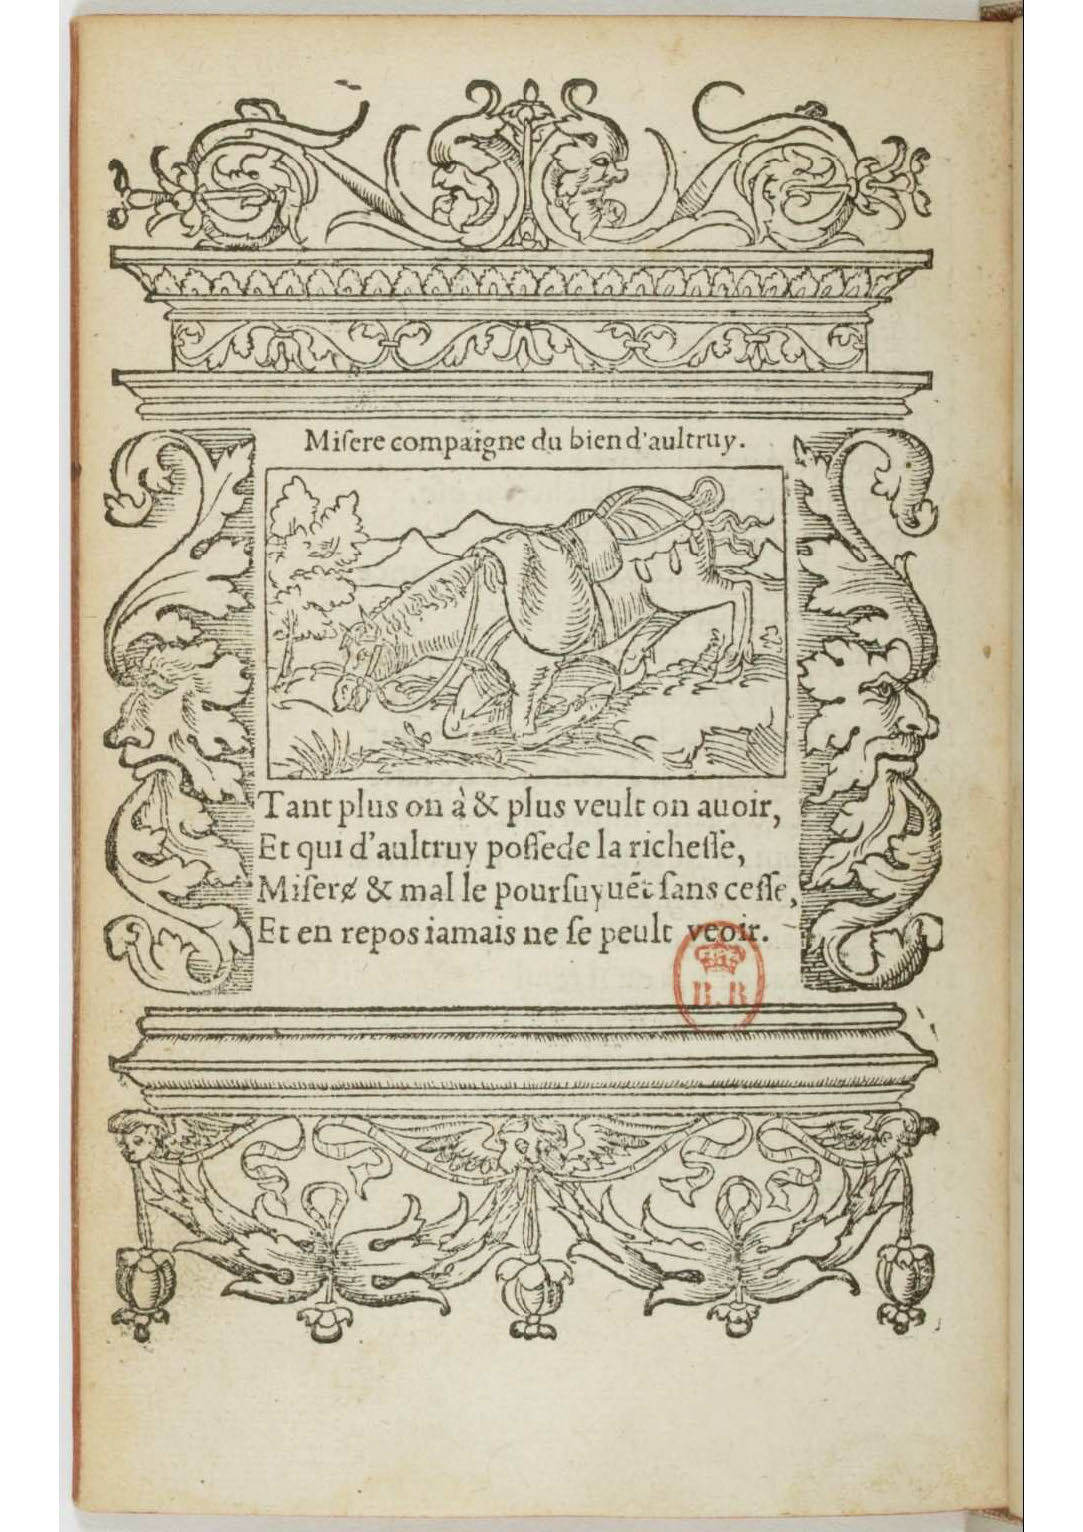 Miſere compaigne du bien d'aultruy.
Tant plus on à & plus veult on auoir,
Et qui d'aultruy poſſede la richeſſe,
Miſerɇ & mal le pourſuyuẽt ſans ceſſe,
Et en repos iamais ne ſe peult veoir.
B. R